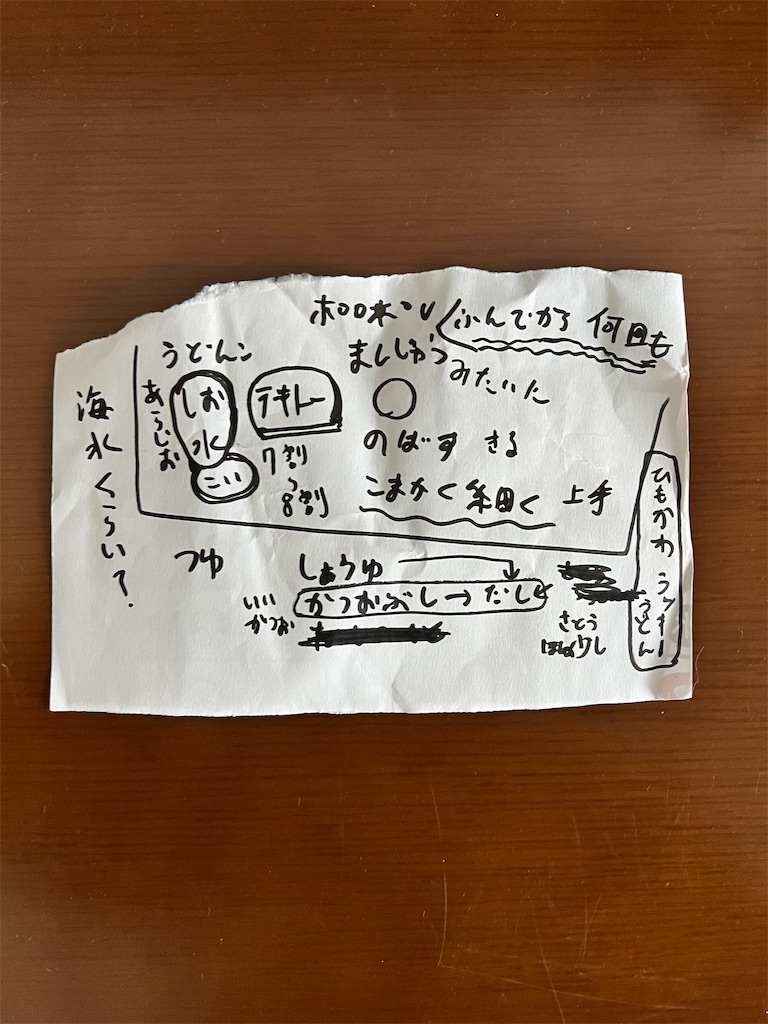 ふんでから 何回も
うどん
みたいに
あらじお
しお
水
こい
テキトー
7割
〜
8割
のばす きる
こまかく 細く 上手
海水くらい?
つゆ
しょうゆ
かつおぶし→だし
いい
かつお
さとう
ひもかわ
うどん